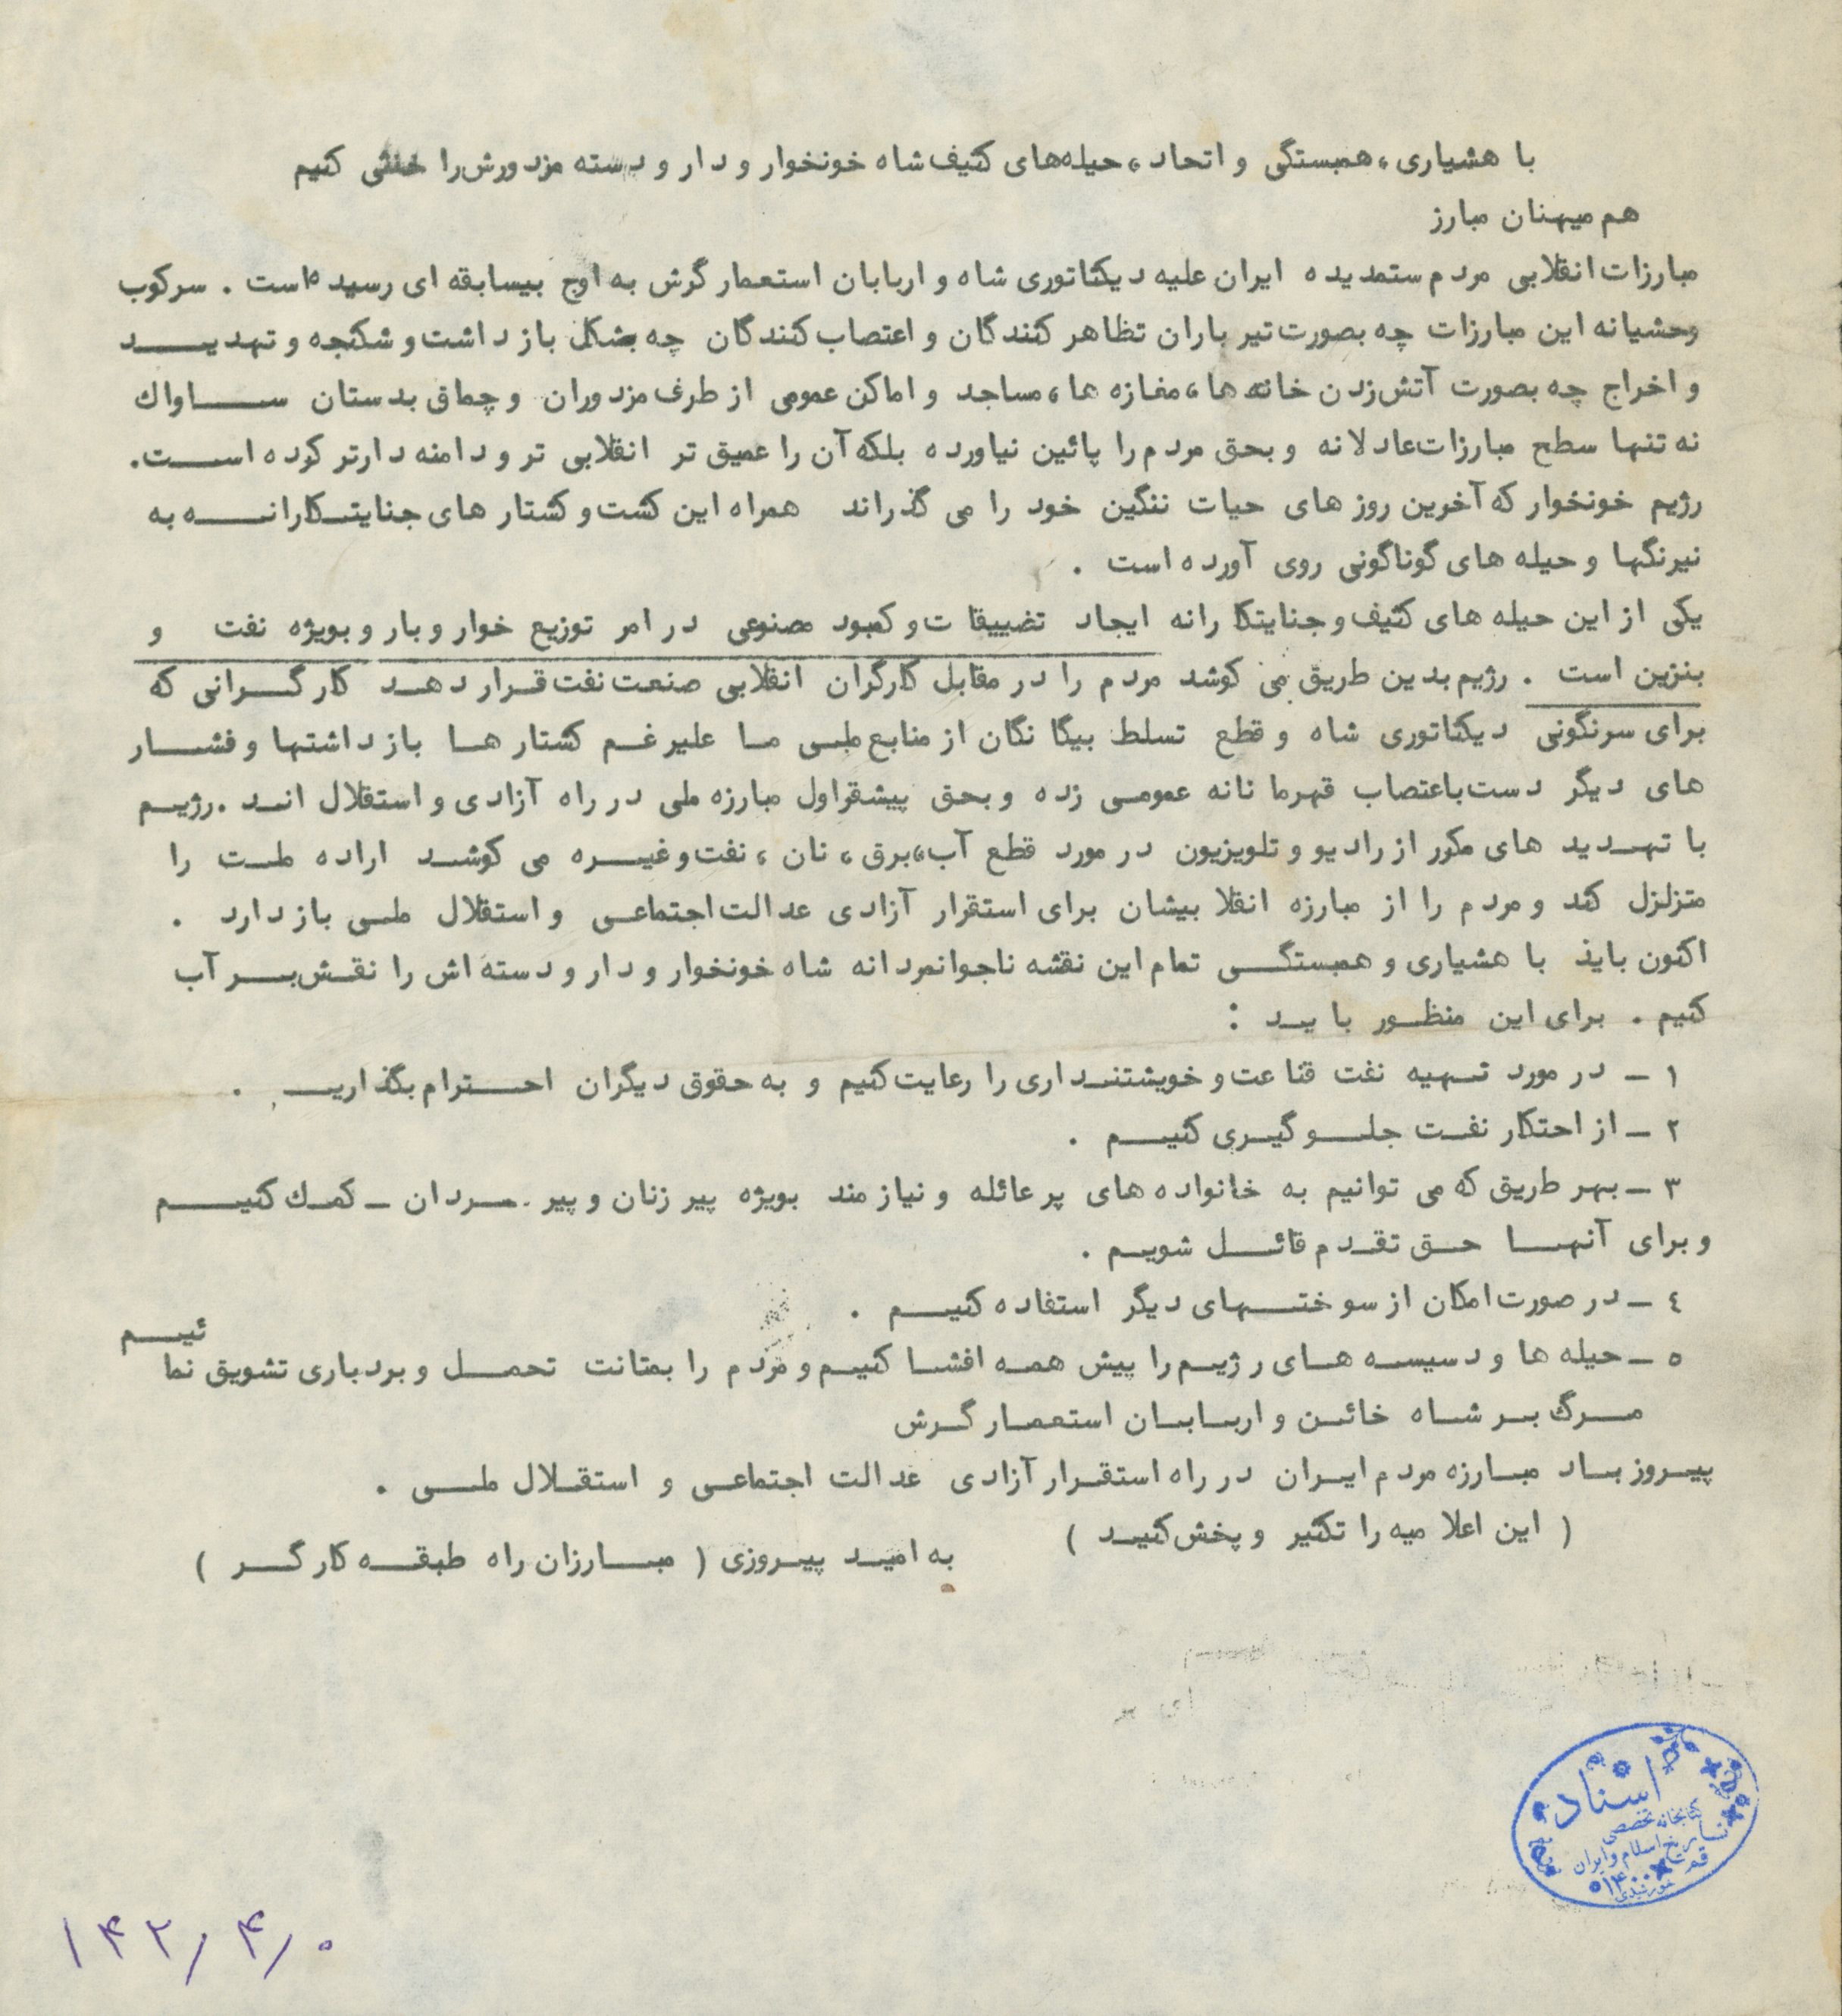 با هشیاری، همبستگی و اتحاد، حیله‌های کثیف شاه خونخوار و دار و دسته مزدورش را خنثی کنیم
هم میهنان مبارز
مبارزات انقلابی مردم ستمدیده ایران علیه دیکتاتوری شاه و اربابان استعمار گرش به اوج بیسابقه ای رسیده است . سرکوب
وحشیانه این مبارزات چه بصورت تیر باران تظاهر کنندگان و اعتصاب کنندگان چه بشکل بازداشت و شکنجه و تهدیــــد
و اخراج چه بصورت آتش زدن خانه ها، مغازه ها، مساجد و اماکن عمومی از طرف مزدوران و چماق بدستان ســـاواك
نه تنها سطح مبارزات عادلانه و بحق مردم را پائین نیاورده بلکه آن را عمیق تر انقلابی تر و دامنه دارتر کرده اســـت.
رژیم خونخوار که آخرین روز های حیات ننگین خود را می گذراند همراه این کشت و کشتار های جنایتـکارانـــه به
نیرنگها و حیله های گوناگونی روی آورده است .
یکی از این حیله های کثیف و جنایتکارانه ایجاد تضییقات و کمبود مصنوعی در امر توزیع خوار و بار و بویژه نفت و
بنزین است . رژیم بدین طریق می کوشد مردم را در مقابل کارگران انقلابی صنعت نفت قـرار دهـد کارگـــرانی که
برای سرنگونی دیکتاتوری شاه و قطع تسلط بیگانگان از منابع ملـی مـا علیرغـم کشتار هـا بازداشتها و فشـــار
های دیگر دست باعتصاب قهرمانانه عمومـی زده و بحق پیشقراول مبارزه ملی در راه آزادی و استقلال انـد . رژیــم
با تهـدید های مکرر از رادیو و تلویزیون در مورد قطع آب، برق، نان، نفت و غیـــره می کوشــد اراده ملـت را
متزلزل کند و مردم را از مبارزه انقلابیشان برای استقرار آزادی عدالت اجتماعـی و استقلال ملـی باز دارد .
اکنون باید با هشیاری و همبستگــی تمام این نقشه ناجوانمردانه شاه خونخوار و دار و دسته اش را نقـش بـــر آب
کنیم . برای این منظــور بایــد :
۱ ـ در مورد تـهیه نفت قناعت و خویشتنـداری را رعایت کنیم و به حقوق دیگران احــترام بگذاریــ .
۲ ـ از احتکار نفـت جلـــوگیـری کنیـــم .
۳ ـ بهر طریق که می توانیم به خانواده های پر عائله و نیازمند بویژه پیر زنان و پیر مــردان ـ کمـك کنیـــم
و برای آنهـــا حــق تقـدم قائــل شویـم .
٤ ـ در صورت امکان از سوختــهای دیگر استفاده کنیـــم .
۵ ـ حیله ها و دسیسه هـای رژیـم را پیش همـه افشـا کنیـم و مردم را بمتانت تحمــل و بردباری تشویق نما
ئیـــم
مــرگ بـر شـاه خائـن و اربـابـان استعمـار گـرش
پیـروز بـاد مبـارزه مردم ایـران در راه استقـرار آزادی عدالت اجتماعـی و استقـلال ملــی .
( این اعلامیه را تکثیر و پخش کنیـد )
به امیـد پیـروزی ( مبـــارزان راه طبقـه کارگـــر )
اسناد
کتابخانه تخصصی
تاریخ اسلام و ایران
قم
۱۴۲/۴/۰